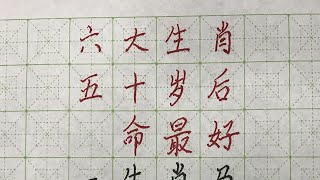 六大生肖
五十岁后
命最好